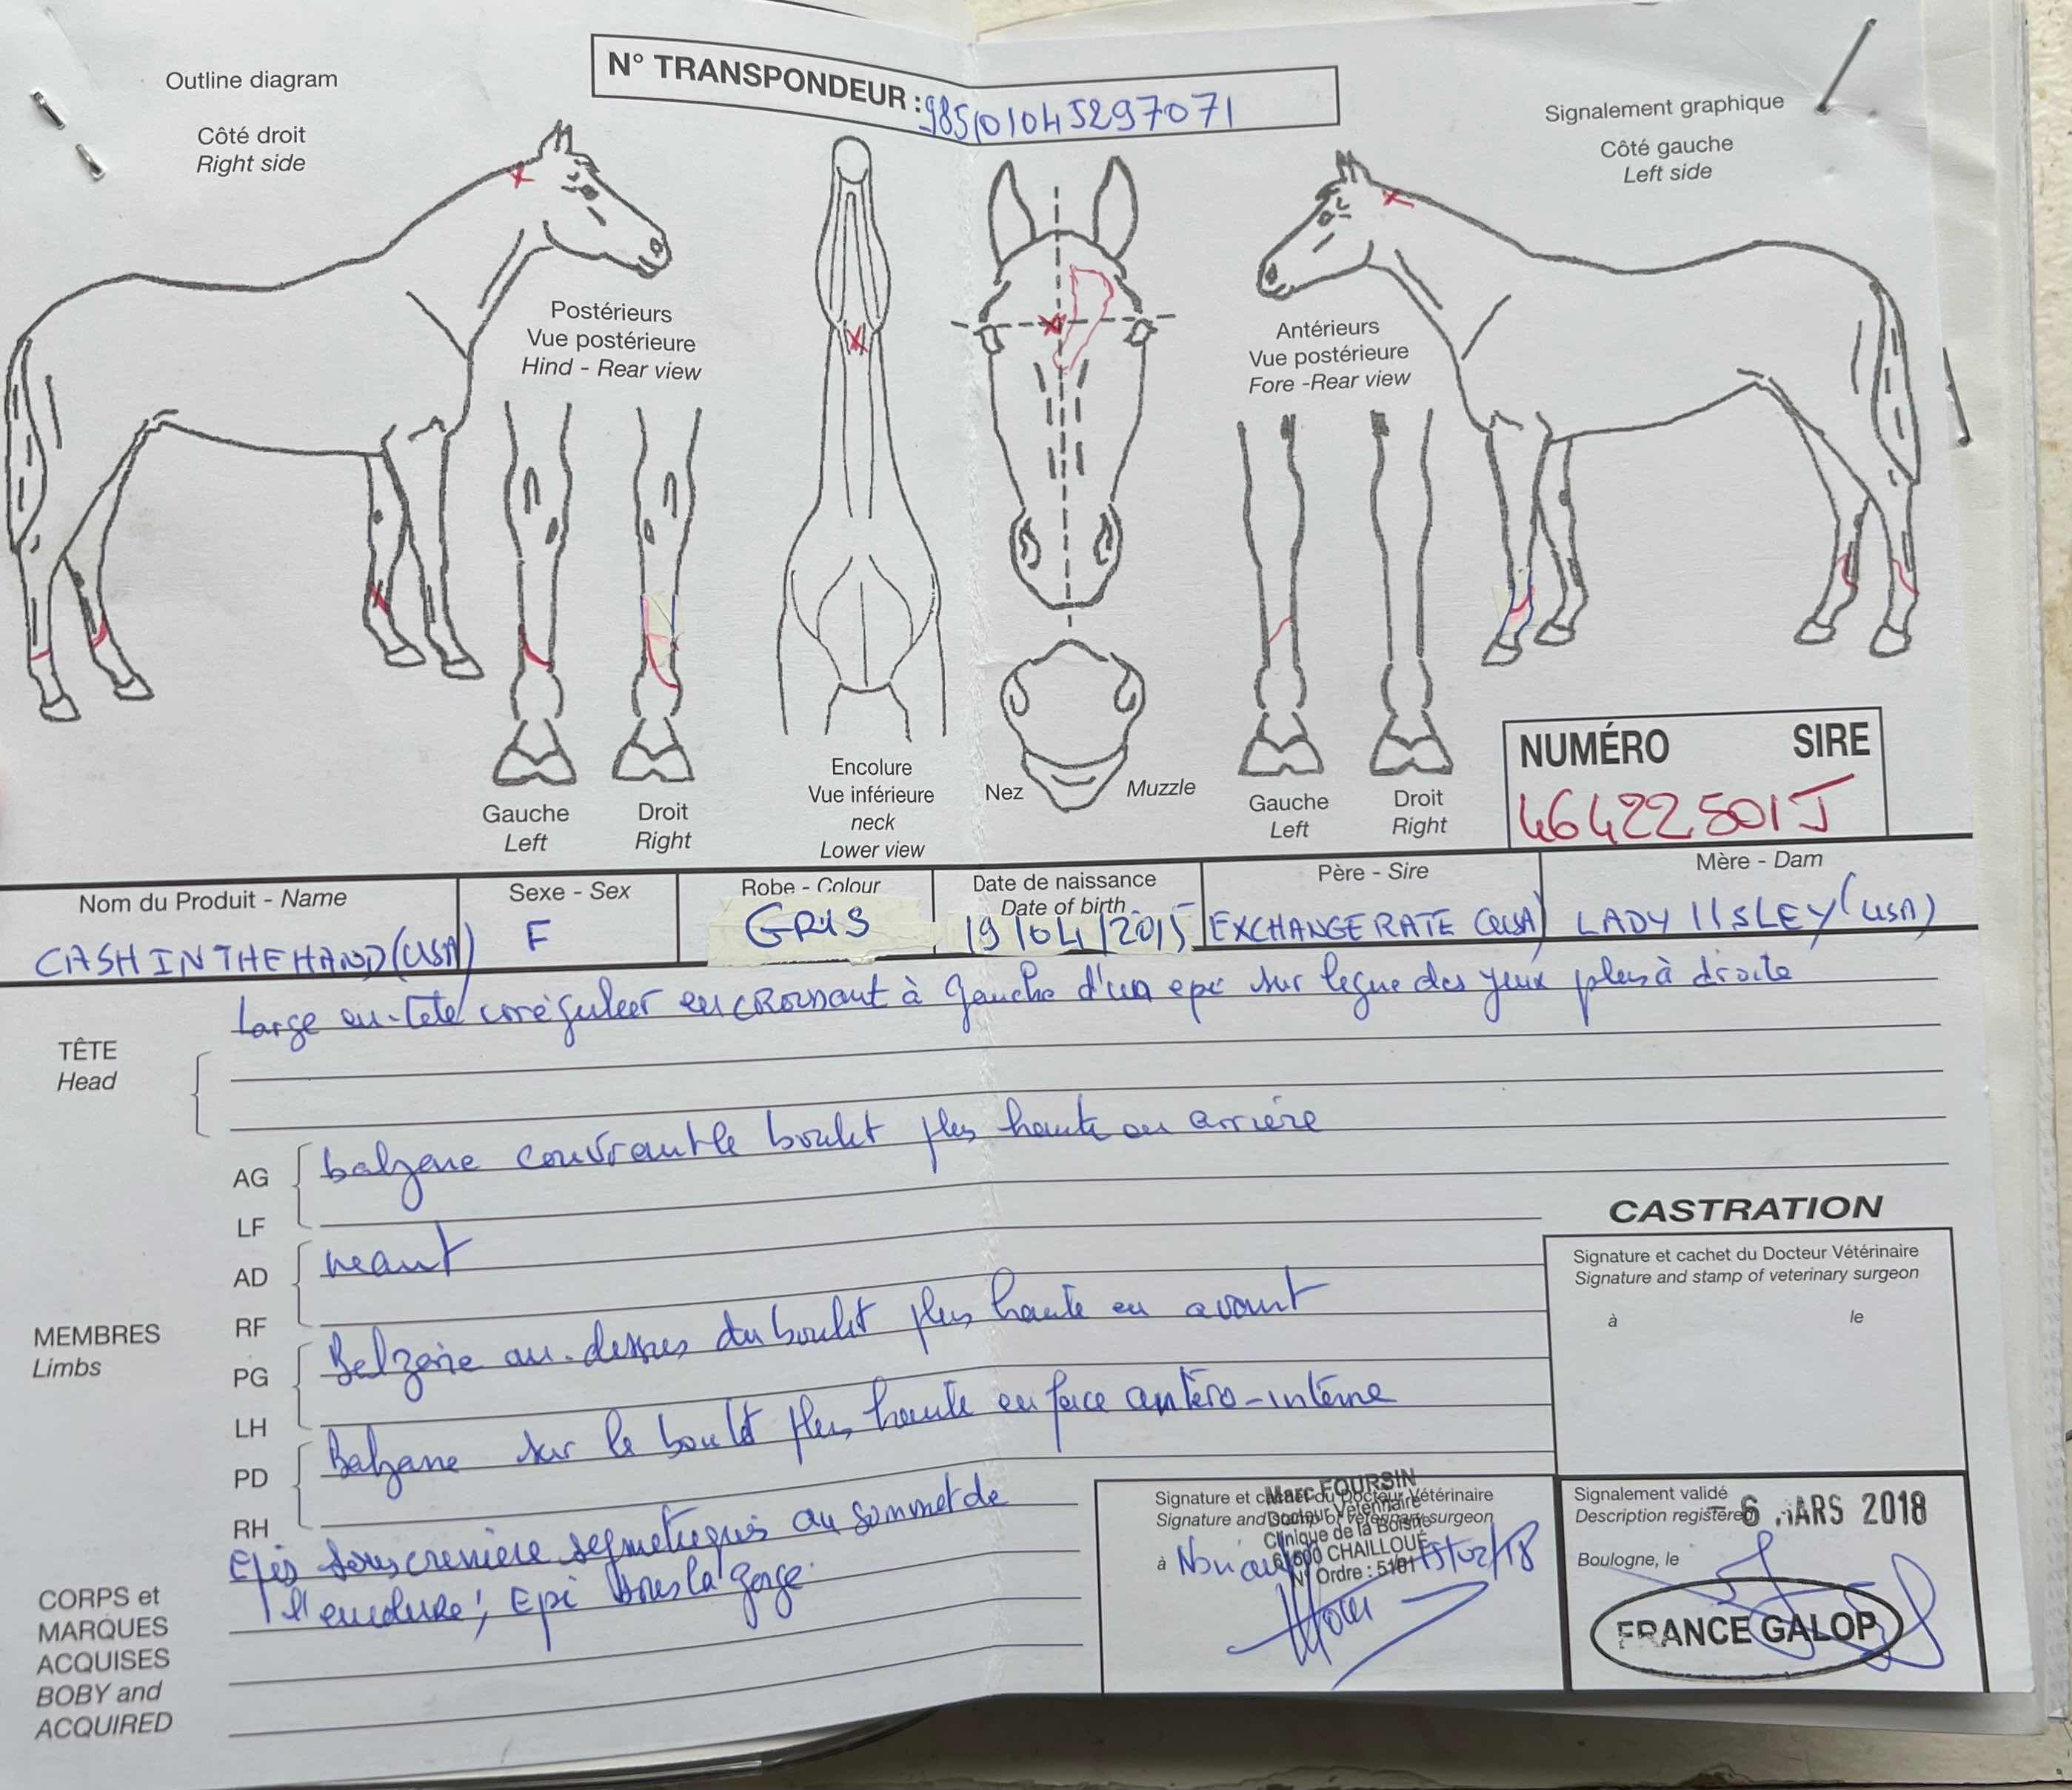 Outline diagram
Côté droit
Right side
N° TRANSPONDEUR : 985101045297071
Signalement graphique
Côté gauche
Left side
Postérieurs
Vue postérieure
Hind - Rear view
Antérieurs
Vue postérieure
Fore -Rear view
Gauche
Left
Droit
Right
Encolure
Vue inférieure
neck
Lower view
Nez
Muzzle
Gauche
Left
Droit
Right
NUMÉRO SIRE
46422501J
Nom du Produit - Name
CASH IN THE HAND (USA)
Sexe - Sex
F
Robe - Colour
GRIS
Date de naissance
Date of birth
19/04/2015
Père - Sire
EXCHANGE RATE (USA)
Mère - Dam
LADY ILSLEY (USA)
TÊTE
Head
Large en-tête irrégulier en croissant à gauche d'un epi sur ligne des yeux plus à droite
MEMBRES
Limbs
AG
LF
balzane couvrant le boulet plus haute en arrière
AD
RF
neant
PG
LH
Balzane au-dessus du boulet plus haute en avant
PD
RH
Balzane sur le boulet plus haute en face antéro-interne
CORPS et
MARQUES
ACQUISES
BOBY and
ACQUIRED
Epis sous crinière symétriques au sommet de
l'encolure; Epi sous la gorge.
CASTRATION
Signature et cachet du Docteur Vétérinaire
Signature and stamp of veterinary surgeon
à le
Signature et cachet du Docteur Vétérinaire
Signature and stamp of veterinary surgeon
Marc FOURSIN
Docteur Vétérinaire
Clinique de la Boisne
61500 CHAILLOUÉ
N° Ordre : 5181
à 15/02/18
Signalement validé
Description registered
6 MARS 2018
Boulogne, le
FRANCE GALOP